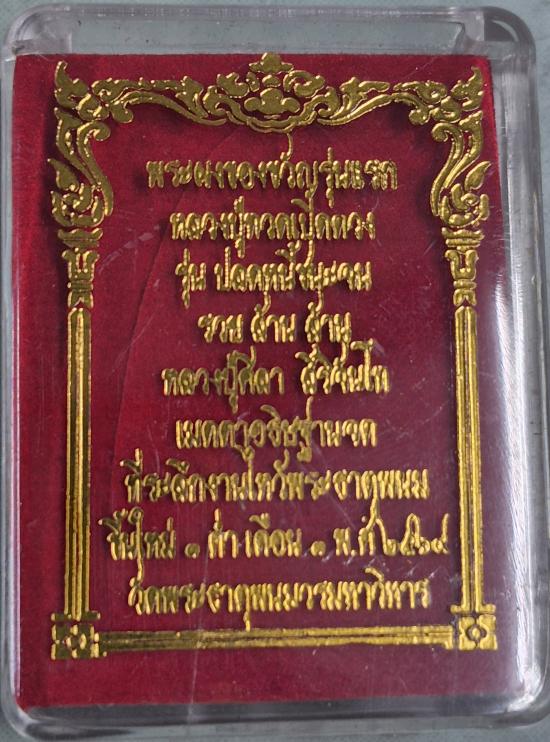 พระผงของขวัญรุ่นแรก
หลวงปู่ทวดเปิดดวง
รุ่น ปลดหนี้ชนะจน
รวย ล้าน ล้าน
หลวงปู่ศิลา สิริจันโท
เมตตาอธิษฐานจิต
ที่ระลึกงานไหว้พระธาตุพนม
ขึ้นใหม่ ๑ ค่ำ เดือน ๑ พ.ศ ๒๕๖๔
วัดพระธาตุพนมวรมหาวิหาร